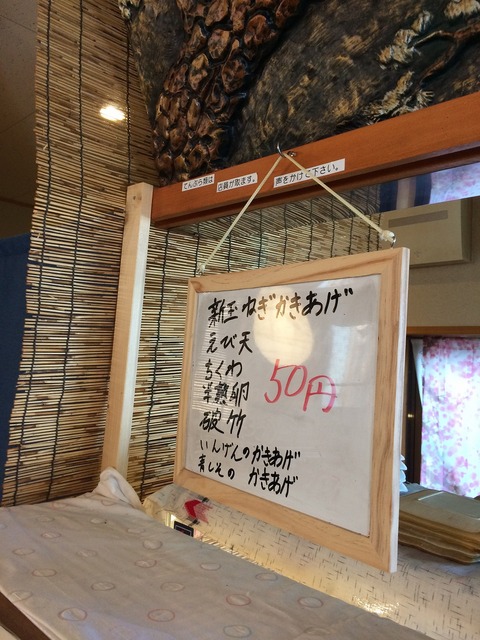 てんぷら類は
店員が取ります。
声をかけて下さい。
新玉ねぎかきあげ
えび天
ちくわ
半熟卵
50円
破竹
いんげんのかきあげ
青しその かきあげ